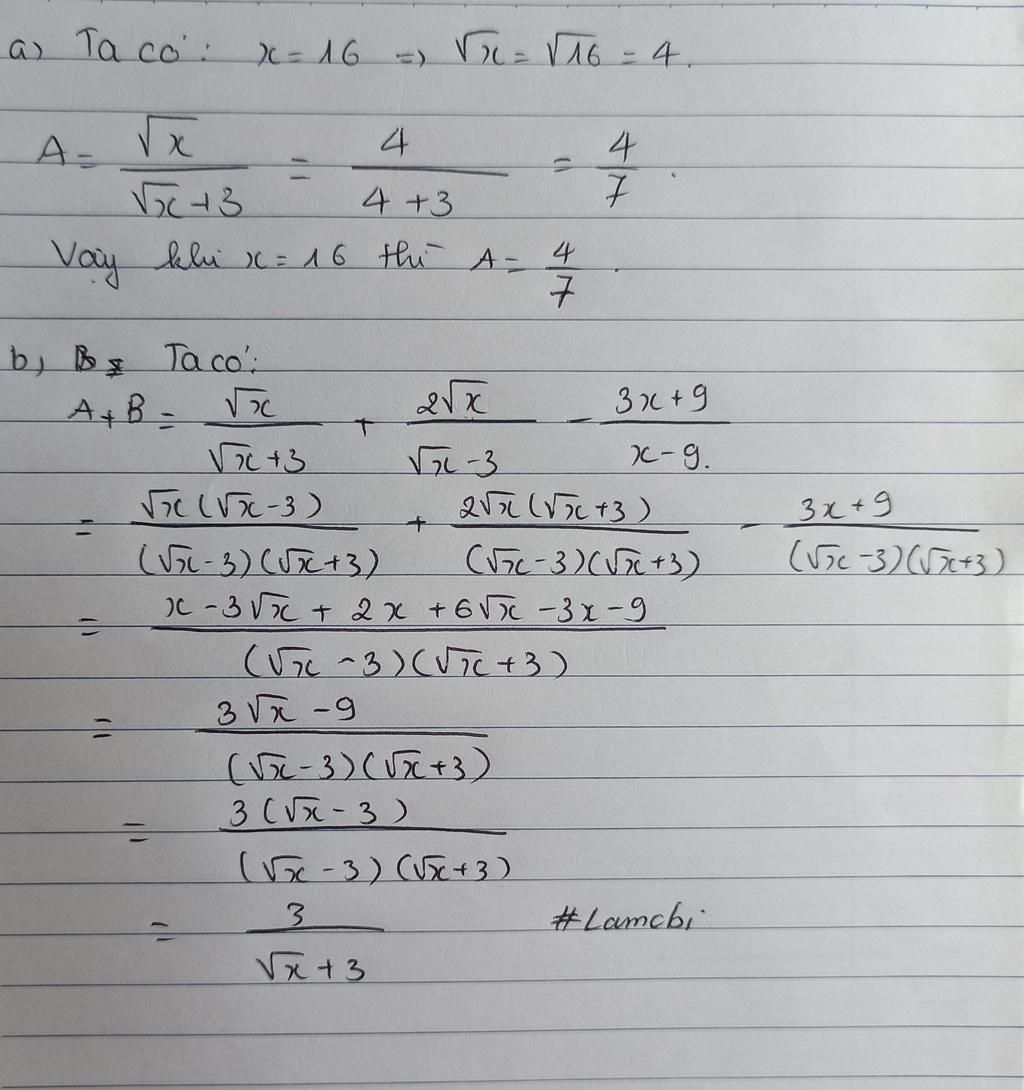 a) Ta có: x = 16 => √x = √16 = 4.
A = √x/(√x+3) = 4/(4+3) = 4/7.
Vậy khi x = 16 thì A = 4/7.
b) Ta có:
A + B = √x/(√x+3) + 2√x/(√x-3) - (3x+9)/(x-9).
= √x(√x-3)/((√x-3)(√x+3)) + 2√x(√x+3)/((√x-3)(√x+3)) - (3x+9)/((√x-3)(√x+3))
= (x - 3√x + 2x + 6√x - 3x - 9)/((√x-3)(√x+3))
= (3√x - 9)/((√x-3)(√x+3))
= 3(√x-3)/((√x-3)(√x+3))
= 3/(√x+3) #Lamcbi